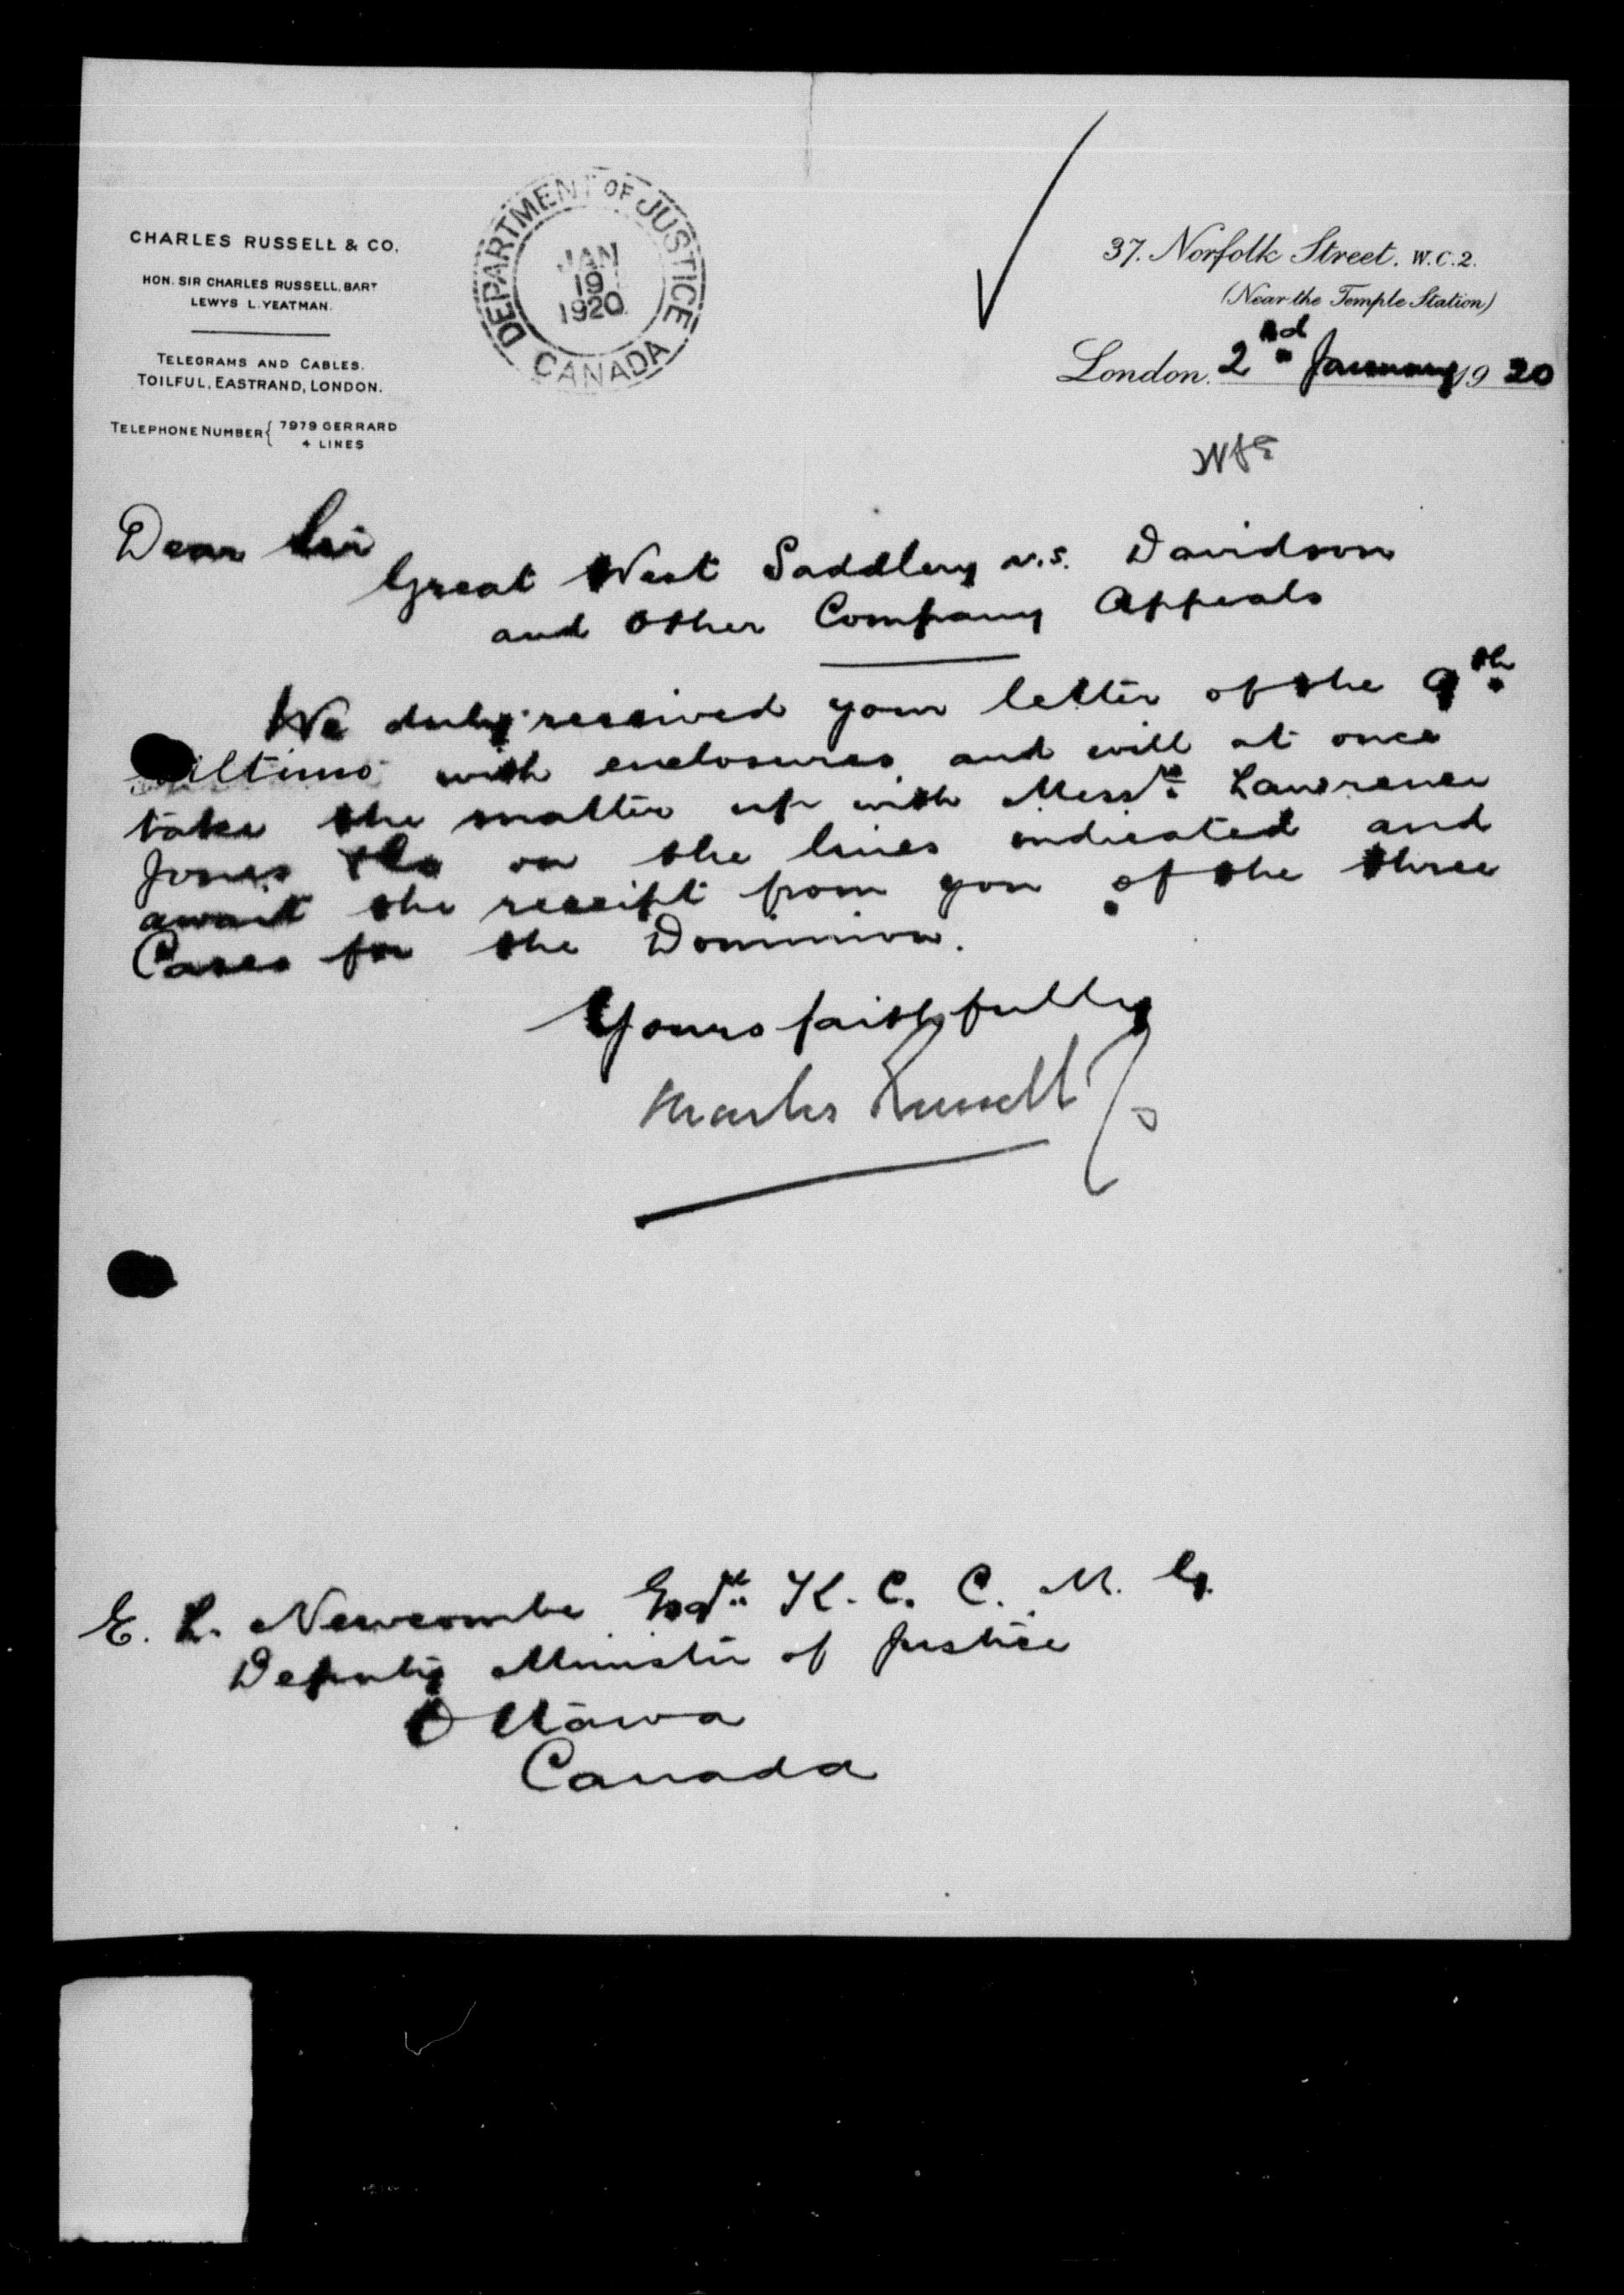 CHARLES RUSSELL & CO.
HON. SIR CHARLES RUSSELL, BART
LEWYS L. YEATMAN.
TELEGRAMS AND CABLES.
TOILFUL, EASTRAND, LONDON.
TELEPHONE NUMBER { 7979 GERRARD
4 LINES
DEPARTMENT OF JUSTICE
JAN
19
1920
CANADA
37. Norfolk Street. W.C.2.
(Near the Temple Station)
London. 2nd January 1920
Dear Sir
Great West Saddlery v.s. Davidson
and Other Company Appeals
We duly received your letter of the 9th
ultimo with enclosures and will at once
take the matter up with Messrs Lawrence
Jones &Co on the lines indicated and
await the receipt from you of the three
Cases for the Dominion.
Yours faithfully
Charles Russell &Co
E. L. Newcombe Esqre K. C. C. M. G.
Deputy Minister of Justice
Ottawa
Canada